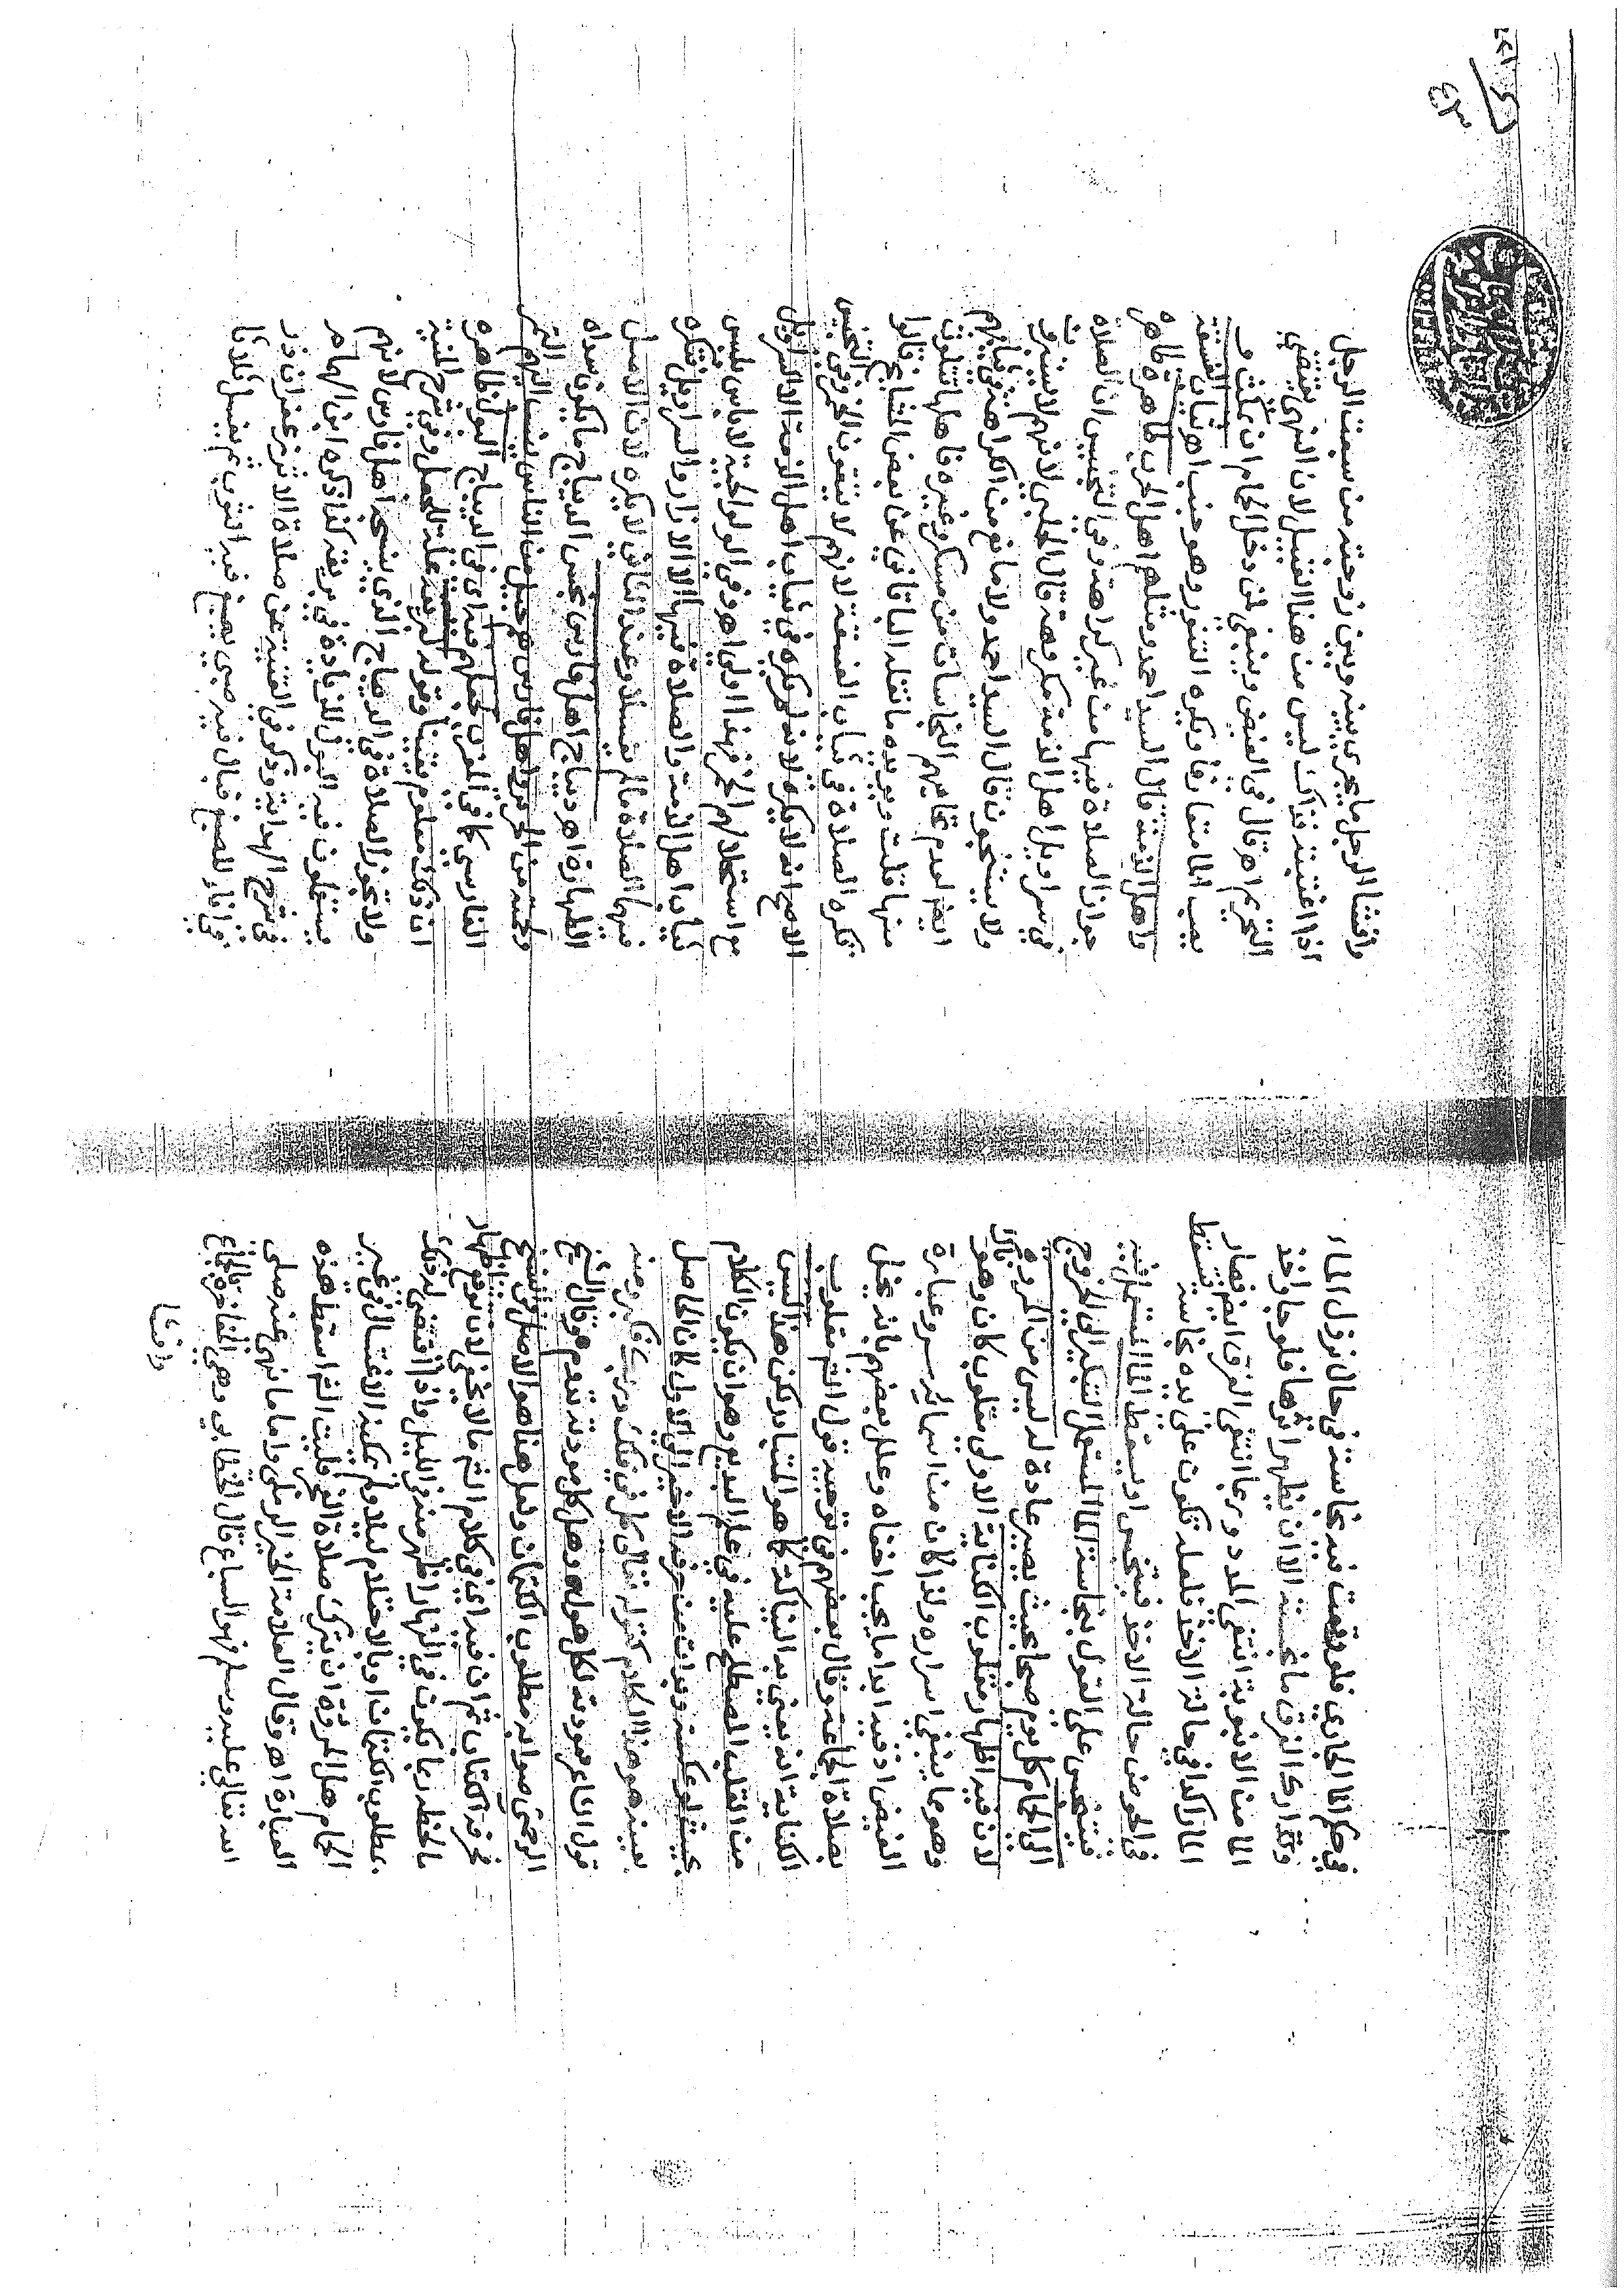 في حكم الماء الجاري فلو وقعت فيه نجاسة في حال نزول الماء
وتدارك الغرف ما نجسته الا ان يظهر اثرها فلو جا واخذ
الما من الانبوبة انتفى المدد وربما انتفى الغرف ايضا فصار
الما راكدا في حالة الاخذ فلعله تكون على يده نجاسة فتسقط
في الحوض حالة الاخذ فيتنجس او يسقط الما المستعمل فيه
فيتنجس على القول بنجاسة الما المستعمل التبكير الى الخروج
الى الحمام كل يوم صباحا بحيث يصير عادة له ليس من المروءة
لان فيه اظهار مقلوب الكناية الاولى مقلوب كان وهو ناك
وهو مما ينبغي اسراره ولذا كان من اسمائه السر وعبارة
الفيض اذ فيه ابدا ما يجب اخفاه وعلل بعضهم بانه يخل
بصلاة الجماعة وقال بعضهم في توجيه قول الشم مقلوب
الكناية انه يعني به النياكة كما هو المتبادر لكن هذا ليس
من القلب المصطلح عليه في علم البديع وهو ان يكون الكلام
بحيث لو عكسته وبدات من حرفه الاخير الى الاول كان الحاصل
بعينه هو هذا الكلام كقوله تعالى كل في فلك وربك فكبر ومنه
قول الشاعر مودته تدوم لكل هول وهل كل مودته تدوم وقال الشيخ
الرحمتي صوابه مطلوب الكتمان ولعل هنا هو الاصل والنسخ
ثم ان فيه اي في كلام الشم ما لا يخفى لان نوم النهار
ربما يكون في النهار اظهر منه في الليل واذا اقتضى له ذلك
مطلوب الكتمان او بالاحتلام ليلا ولم يمكنه الاغتسال في غير
الحمام هل المروة ان يترك صلاة الفجر فليت الشم اسقط هذه
العبارة اه وقال العلامة الخير الرملي واما ما نهى عنه صلى
الله تعالى عليه وسلم فهو السباع قال الخطابي وهي الفاخرة بالجماع
وافشا
وافشا الرجل ما يجري بينه وبين زوجته من سبعت الرجل
اذا اغتبته فذاك ليس من هذا القبيل لان النهي يقتضي
التحريم اه قال في الفيض وينبغي لمن دخل الحمام ان يمكث و
يصب الما متعارفا ويكره التنور وهو جنب اه ثياب الفسقة
واهل الذمة قال السيد احمد ومثلهم اهل الحرب طاهرة ظاهره
جواز الصلاة فيها من غير كراهة وفي التجنيس ان الصلاة
في سراويل اهل الذمة مكروهة قال الحلبي لانهم لا يستبرؤن
ولا يستنجون قال السيد احمد ولا مانع من الكراهة في ثيابهم
ايضا لعدم تحاميهم النجاسات من مسكر وغيره فاهلها يتلون
منها قلت ويويده ما نقله الباقاني عن بعض المشايخ قالوا
تكره الصلاة في ثياب الفسقة لانهم لا يتقون الخمر وفي التجنيس
الاصح انه لا يكره لانه لم يكره في ثياب اهل الذمة الا السراويل
مع استحلالهم الخمر فهذا اولى اه وفي الولوالجية لا باس بلبس
ثياب اهل الذمة والصلاة فيها الا الازار والسراويل فتكره
فيها الصلاة ما لم يغسلا وعند الثاني لا يكره لان الاصل
الطهارة اه ديباج اهل فارس نجس الديباج ما يكون سداه
ولحمته من الحرير واهل فارس هم جيل من الناس ينسب اليهم الثمر
الفارسي كما في المغرب لجعلهم فيه اي في الديباج البول ظاهره
ان ذلك معلوم يقينا وقوله لبريقه علة للجعل وفي شرح المنية
ولا تجوز الصلاة في الديباج الذي ينسجه اهل فارس لانهم
يستعملون فيه البول للزيادة في بريقه كذا ذكره ابن الهمام
في شرح الهداية وذكر في القنية عن صلاة الاثر عن ابن ذر
في انا للصبغ فبال فيه صبي يصبغ فيه الثوب ثم يغسل ثلاثا